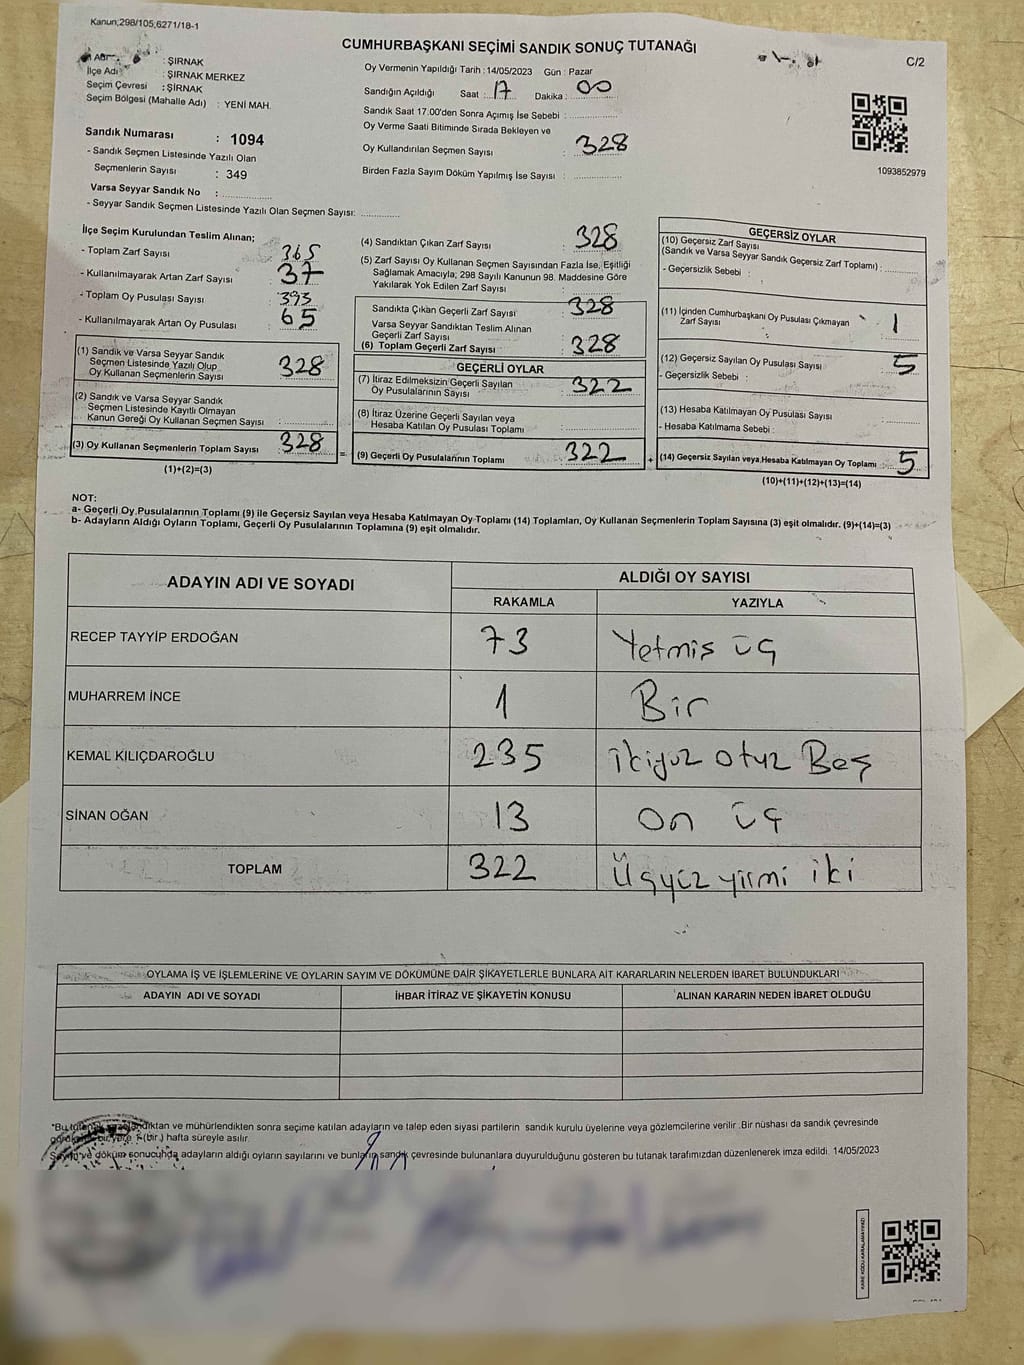 Kanun;298/105,6271/18-1
CUMHURBAŞKANI SEÇİMİ SANDIK SONUÇ TUTANAĞI
C/2
: ŞIRNAK
İlçe Adı : ŞIRNAK MERKEZ
Seçim Çevresi : ŞIRNAK
Seçim Bölgesi (Mahalle Adı) : YENİ MAH.
Sandık Numarası : 1094
- Sandık Seçmen Listesinde Yazılı Olan
Seçmenlerin Sayısı : 349
Varsa Seyyar Sandık No :
- Seyyar Sandık Seçmen Listesinde Yazılı Olan Seçmen Sayısı:
Oy Vermenin Yapıldığı Tarih : 14/05/2023 Gün : Pazar
Sandığın Açıldığı Saat : 17 Dakika : 00
Sandık Saat 17:00'den Sonra Açımış İse Sebebi :
Oy Verme Saati Bitiminde Sırada Bekleyen ve
Oy Kullandırılan Seçmen Sayısı : 328
Birden Fazla Sayım Döküm Yapılmış İse Sayısı :
1093852979
İlçe Seçim Kurulundan Teslim Alınan;
- Toplam Zarf Sayısı : 365
- Kullanılmayarak Artan Zarf Sayısı : 37
- Toplam Oy Pusulası Sayısı : 393
- Kullanılmayarak Artan Oy Pusulası : 65
(1) Sandık ve Varsa Seyyar Sandık
Seçmen Listesinde Yazılı Olup
Oy Kullanan Seçmenlerin Sayısı : 328
(2) Sandık ve Varsa Seyyar Sandık
Seçmen Listesinde Kayıtlı Olmayan
Kanun Gereği Oy Kullanan Seçmen Sayısı :
(3) Oy Kullanan Seçmenlerin Toplam Sayısı : 328
(1)+(2)=(3)
(4) Sandıktan Çıkan Zarf Sayısı : 328
(5) Zarf Sayısı Oy Kullanan Seçmen Sayısından Fazla İse, Eşitliği
Sağlamak Amacıyla; 298 Sayılı Kanunun 98. Maddesine Göre
Yakılarak Yok Edilen Zarf Sayısı :
Sandıkta Çıkan Geçerli Zarf Sayısı : 328
Varsa Seyyar Sandıktan Teslim Alınan
Geçerli Zarf Sayısı :
(6) Toplam Geçerli Zarf Sayısı : 328
GEÇERLİ OYLAR
(7) İtiraz Edilmeksizin Geçerli Sayılan
Oy Pusulalarının Sayısı : 322
(8) İtiraz Üzerine Geçerli Sayılan veya
Hesaba Katılan Oy Pusulası Toplamı :
= (9) Geçerli Oy Pusulalarının Toplamı : 322
GEÇERSİZ OYLAR
(10) Geçersiz Zarf Sayısı
(Sandık ve Varsa Seyyar Sandık Geçersiz Zarf Toplamı) :
- Geçersizlik Sebebi :
(11) İçinden Cumhurbaşkanı Oy Pusulası Çıkmayan
Zarf Sayısı : 1
(12) Geçersiz Sayılan Oy Pusulası Sayısı : 5
- Geçersizlik Sebebi :
(13) Hesaba Katılmayan Oy Pusulası Sayısı :
- Hesaba Katılmama Sebebi :
+ (14) Geçersiz Sayılan veya Hesaba Katılmayan Oy Toplamı : 5
(10)+(11)+(12)+(13)=(14)
NOT:
a- Geçerli Oy Pusulalarının Toplamı (9) ile Geçersiz Sayılan veya Hesaba Katılmayan Oy Toplamı (14) Toplamları, Oy Kullanan Seçmenlerin Toplam Sayısına (3) eşit olmalıdır. (9)+(14)=(3)
b- Adayların Aldığı Oyların Toplamı, Geçerli Oy Pusulalarının Toplamına (9) eşit olmalıdır.
ADAYIN ADI VE SOYADI ALDIĞI OY SAYISI
RAKAMLA YAZIYLA
RECEP TAYYİP ERDOĞAN 73 Yetmiş üç
MUHARREM İNCE 1 Bir
KEMAL KILIÇDAROĞLU 235 ikiyüz otuz Beş
SİNAN OĞAN 13 On üç
TOPLAM 322 Üçyüz yirmi iki
OYLAMA İŞ VE İŞLEMLERİNE VE OYLARIN SAYIM VE DÖKÜMÜNE DAİR ŞİKAYETLERLE BUNLARA AİT KARARLARIN NELERDEN İBARET BULUNDUKLARI
ADAYIN ADI VE SOYADI İHBAR İTİRAZ VE ŞİKAYETİN KONUSU ALINAN KARARIN NEDEN İBARET OLDUĞU
ve mühürlendikten sonra seçime katılan adayların ve talep eden siyasi partilerin sandık kurulu üyelerine veya gözlemcilerine verilir .Bir nüshası da sandık çevresinde
(bir.) hafta süreyle asılır.
döküm sonucunda adayların aldığı oyların sayılarını ve bunların sandık çevresinde bulunanlara duyurulduğunu gösteren bu tutanak tarafımızdan düzenlenerek imza edildi. 14/05/2023
KARE KODU KARALAMAYINIZ!